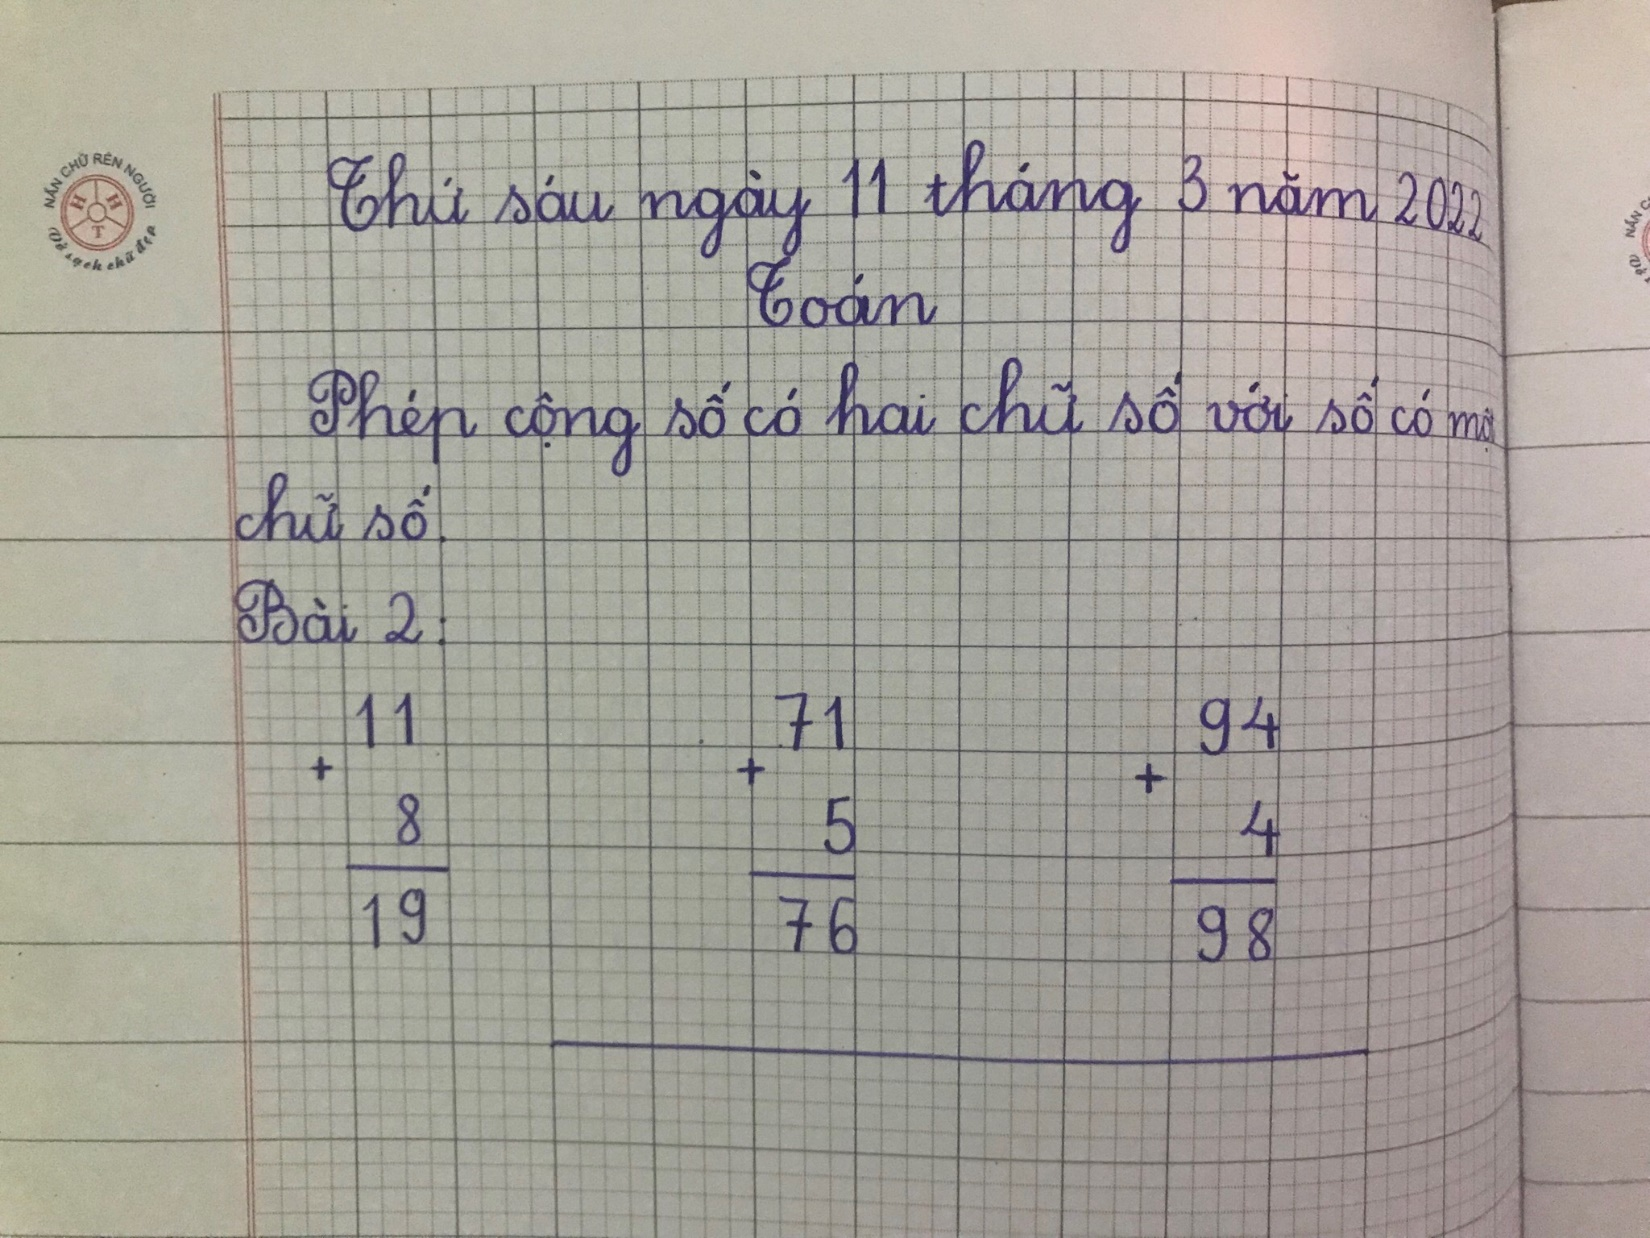 NẮN CHỮ RÈN NGƯỜI
H H
T
Vở sạch chữ đẹp
Thứ sáu ngày 11 tháng 3 năm 2022
Toán
Phép cộng số có hai chữ số với số có một
chữ số.
Bài 2:
11 71 94
+ + +
8 5 4
19 76 98